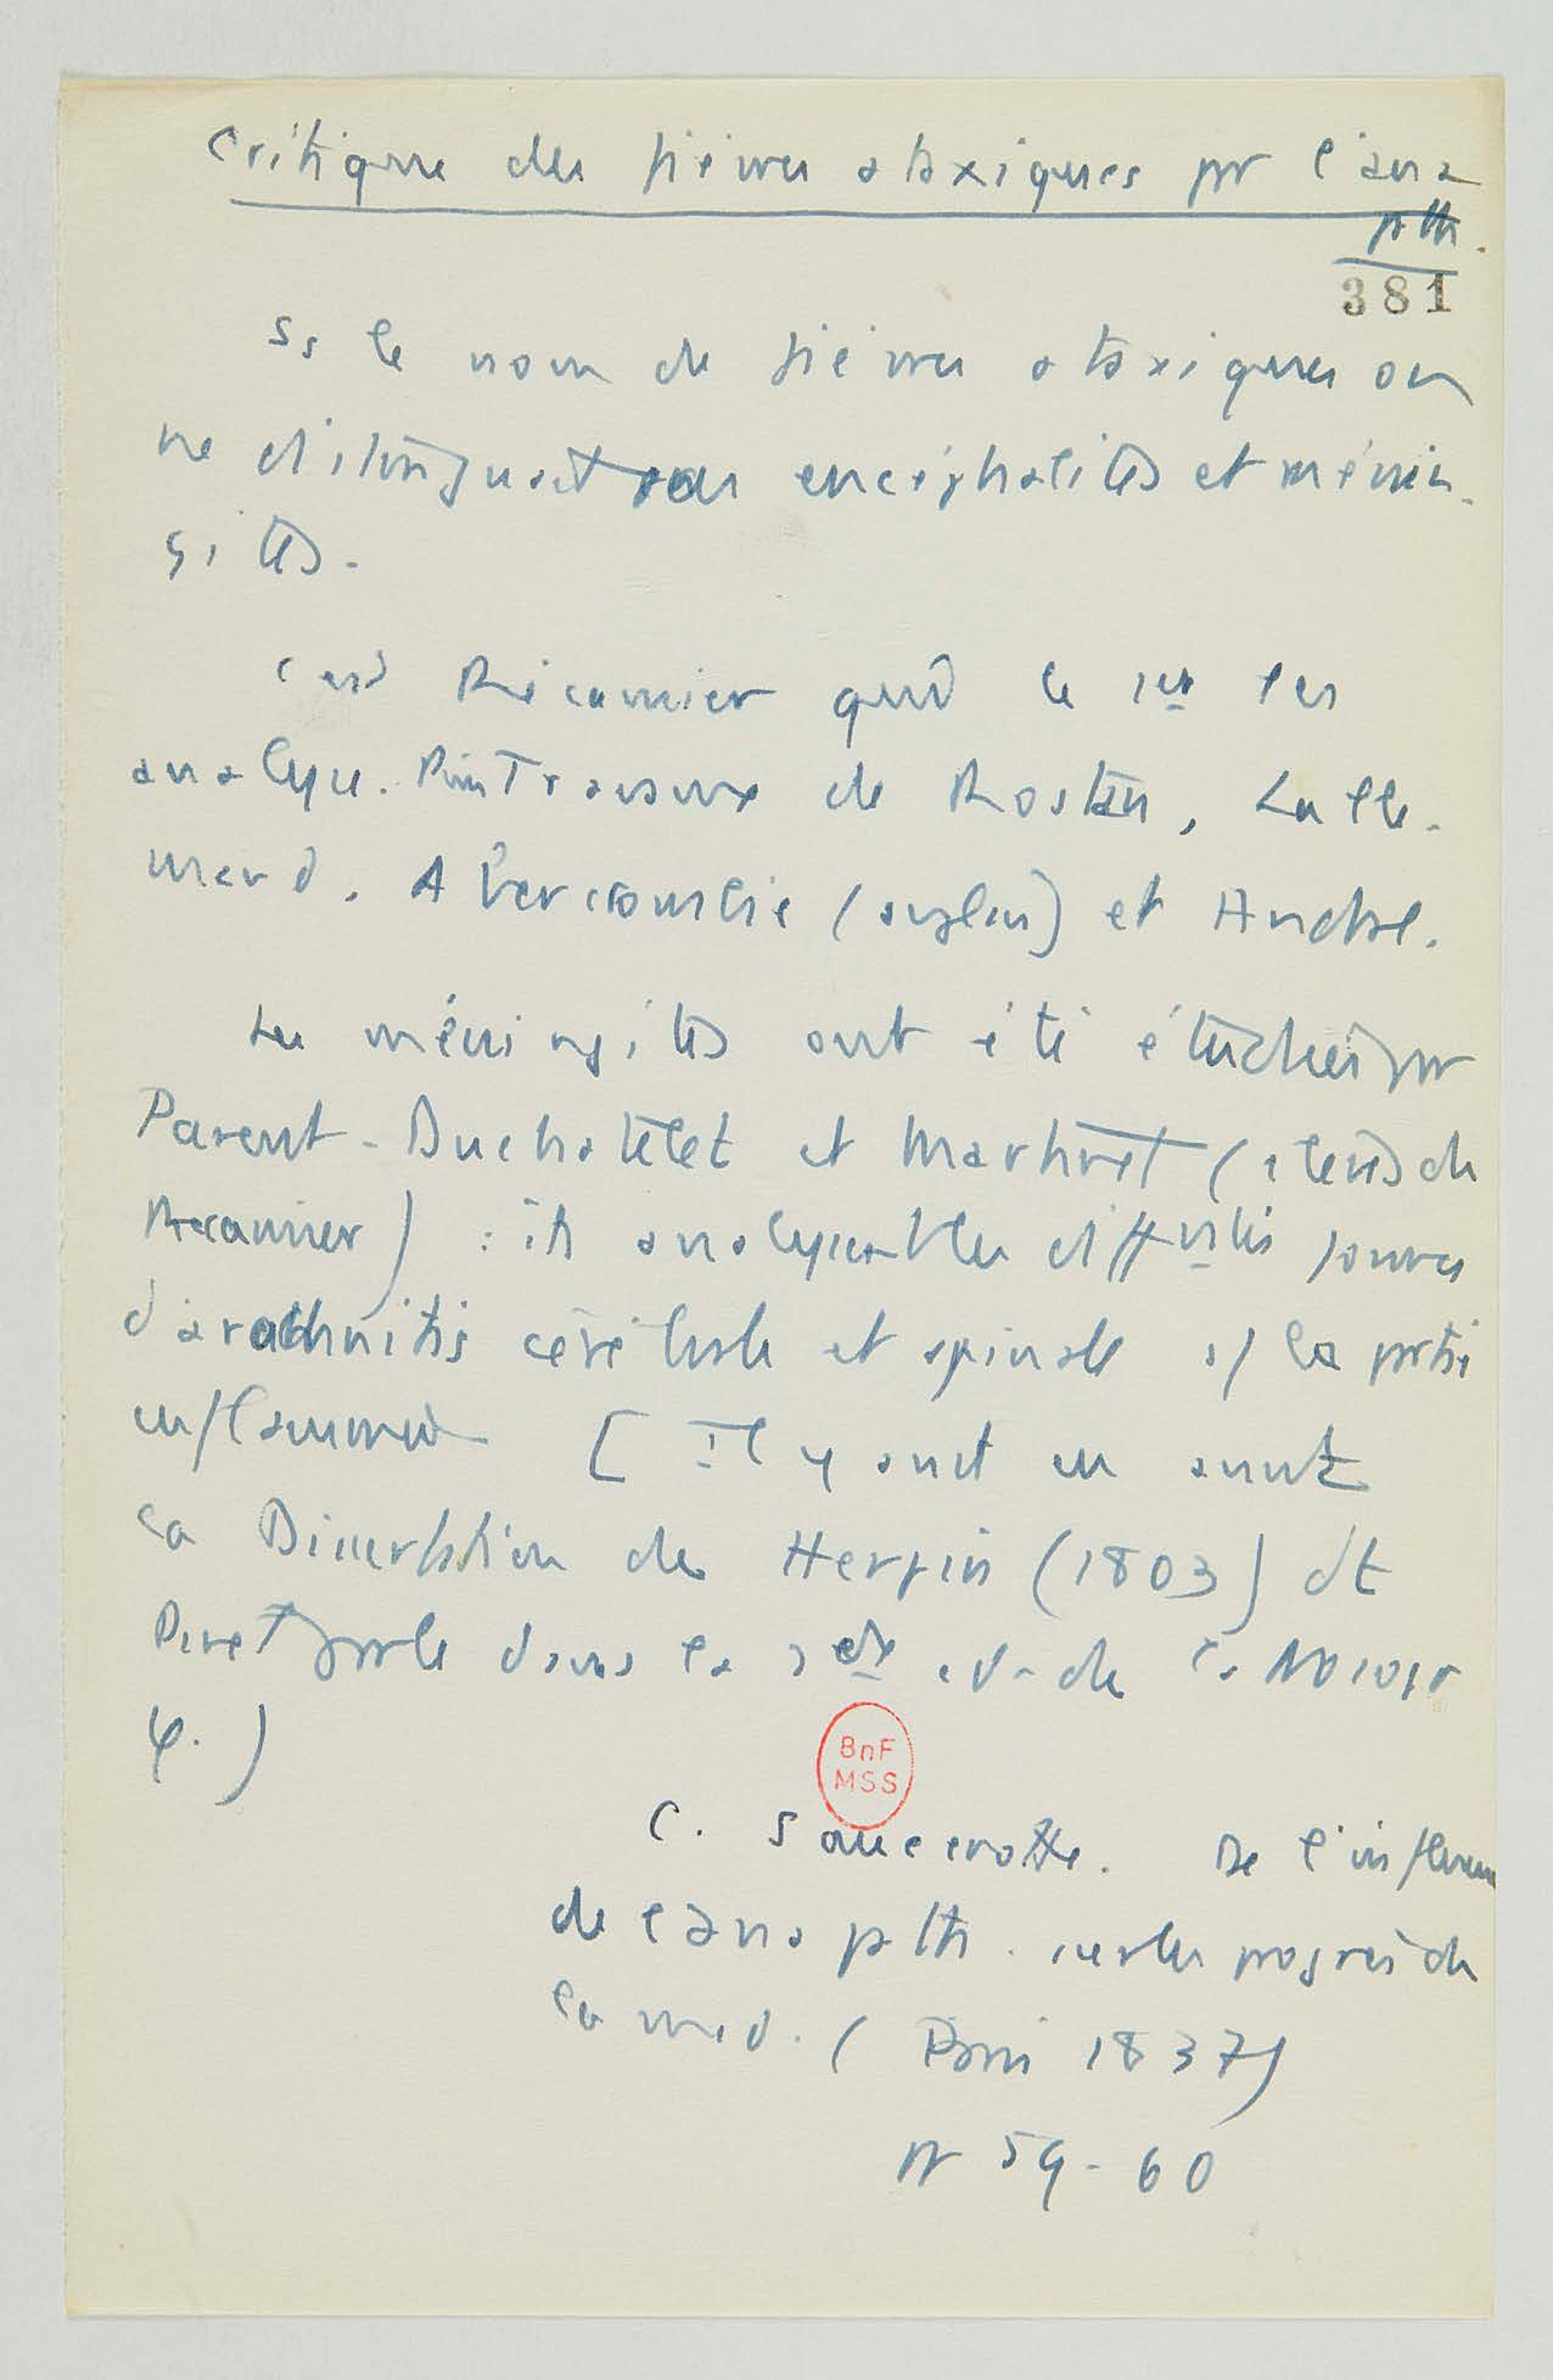 Critique des fièvres ataxiques par l'ana
pth.
381
Ss le nom de fièvres ataxiques on
ne distinguait pas encéphalites et ménin-
gites.
C'est Récamier qui le 1er les
analyse. Puis Travaux de Rostan, Lalle-
mand, Abercrombie (anglais) et Andral.
Les méningites ont été étudiées par
Parent-Duchatelet et Martinet (élèves de
Récamier) : ils analysent les diffntes formes
d'arachnitis cérébrale et spinale s/ la partie
enflammée [Il y avait eu avant
la Dissertation de Herpin (1803) dt
Pinel parle dans la 2de éd. de la Nosogr
φ.)
BnF
MSS
C. Saucerotte. De l'influence
de l'ana pth. sur les progrès de
la med. (Paris 1837)
p 59-60